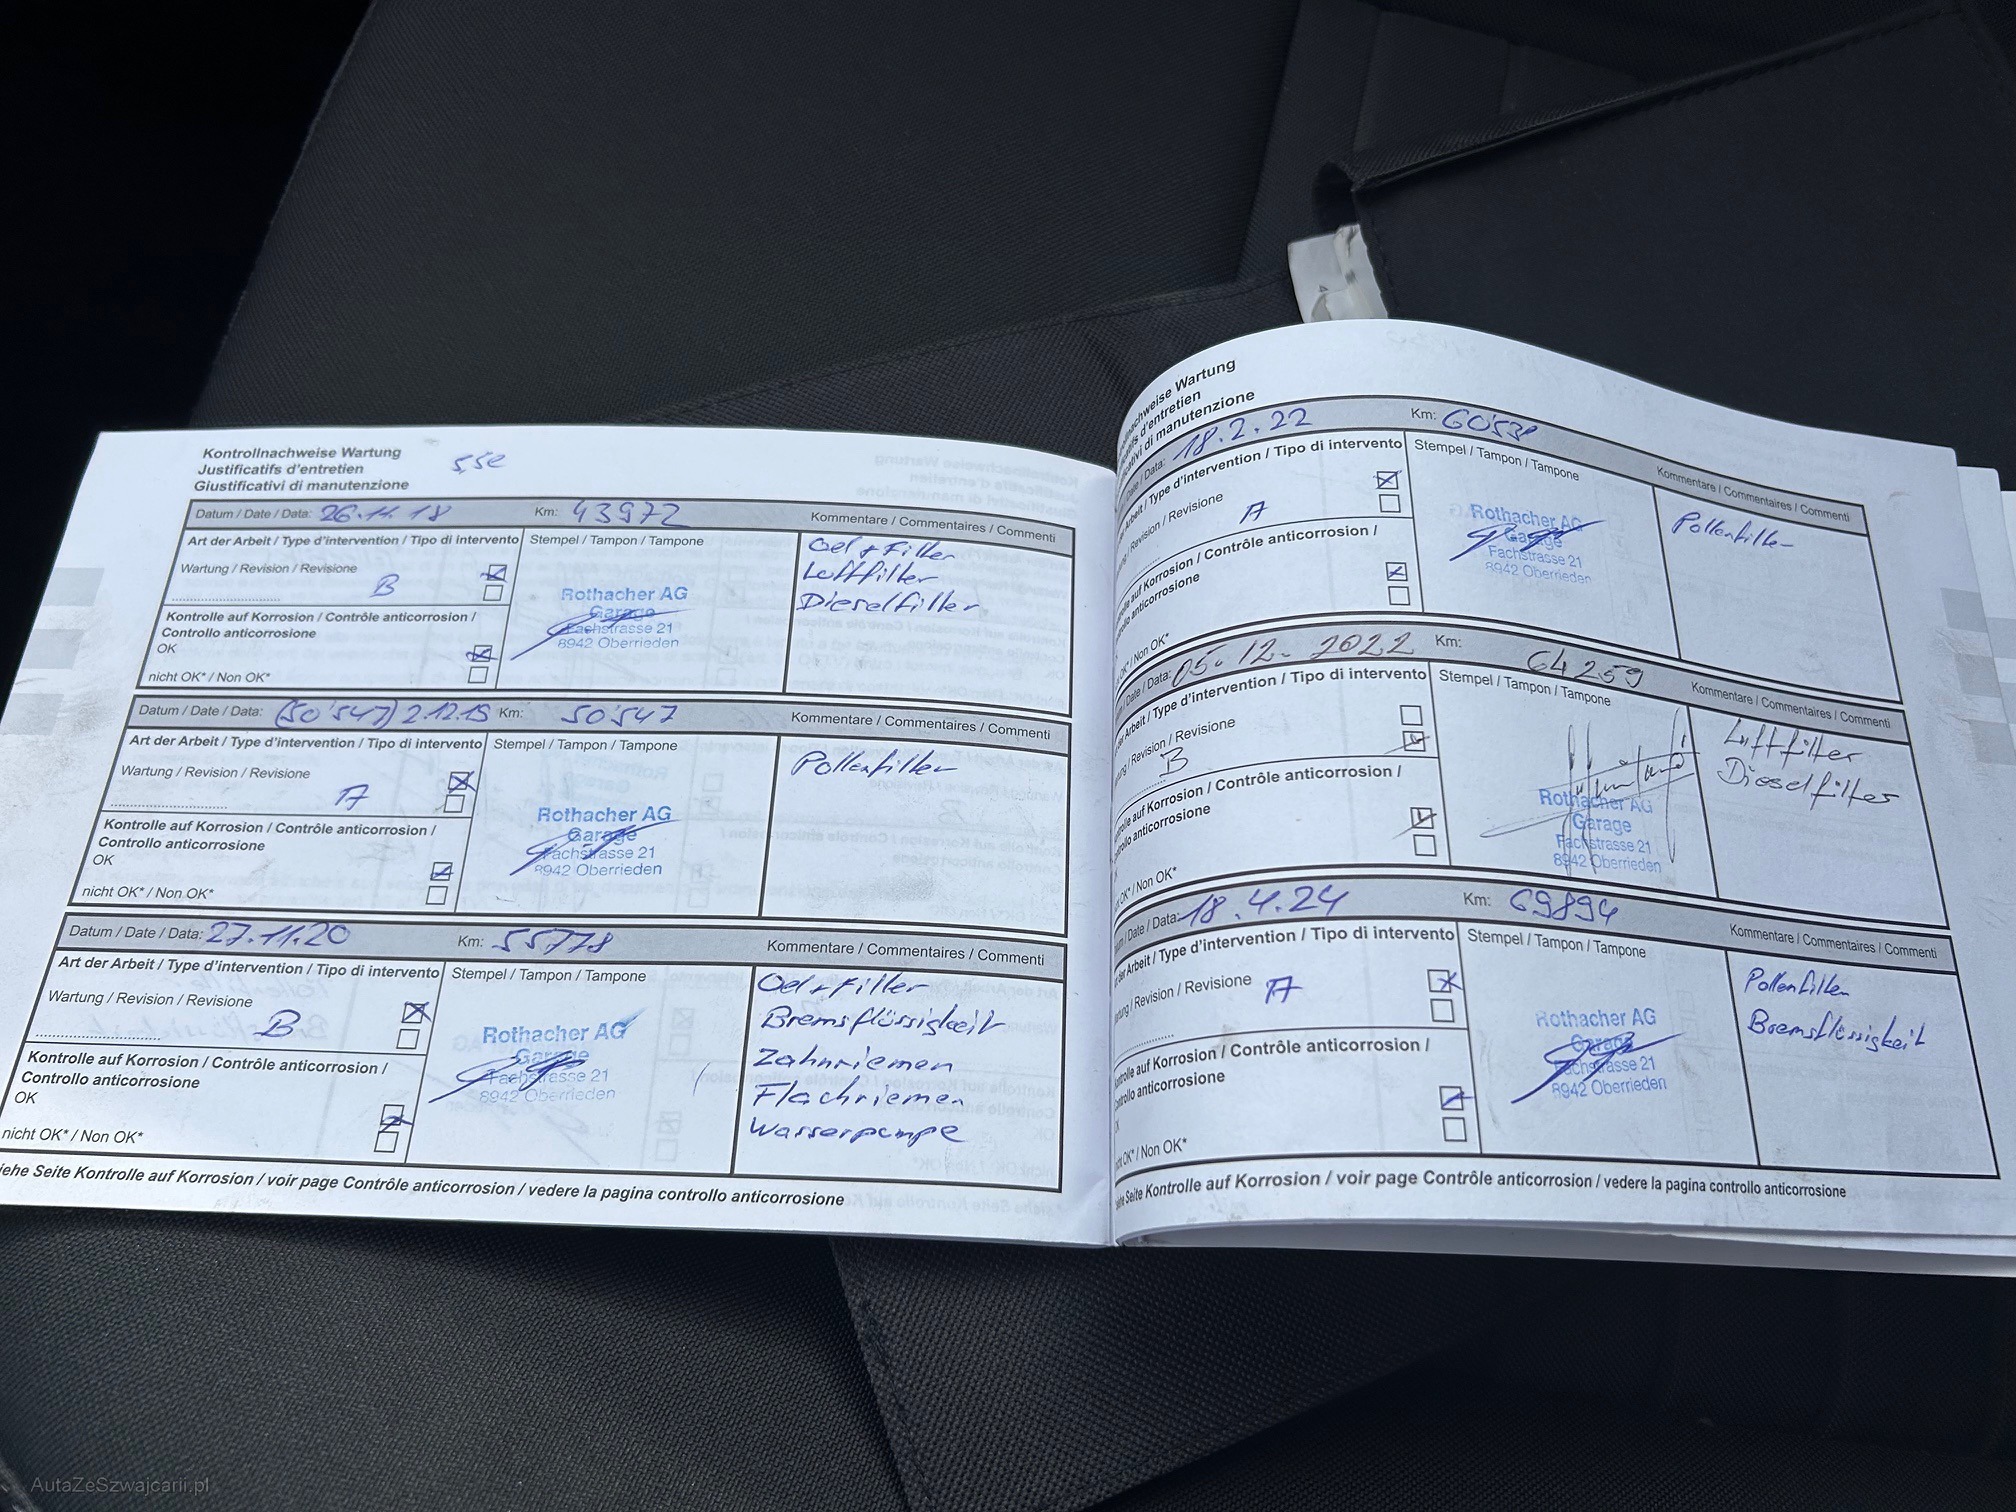 Kontrollnachweise Wartung
Justificatifs d'entretien
Giustificativi di manutenzione
Datum / Date / Data: 26.11.18 Km: 43972 Kommentare / Commentaires / Commenti
Art der Arbeit / Type d'intervention / Tipo di intervento Stempel / Tampon / Tampone
Wartung / Revision / Revisione
B
Kontrolle auf Korrosion / Contrôle anticorrosion /
Controllo anticorrosione
OK
nicht OK* / Non OK*
Rothacher AG
Garage
Fachstrasse 21
8942 Oberrieden
Oel + Filter
Luftfilter
Dieselfilter
Datum / Date / Data: (50'547) 2.12.19 Km: 50'547 Kommentare / Commentaires / Commenti
Art der Arbeit / Type d'intervention / Tipo di intervento Stempel / Tampon / Tampone
Wartung / Revision / Revisione
A
Kontrolle auf Korrosion / Contrôle anticorrosion /
Controllo anticorrosione
OK
nicht OK* / Non OK*
Rothacher AG
Garage
Fachstrasse 21
8942 Oberrieden
Pollenfilter
Datum / Date / Data: 27.11.20 Km: 55778 Kommentare / Commentaires / Commenti
Art der Arbeit / Type d'intervention / Tipo di intervento Stempel / Tampon / Tampone
Wartung / Revision / Revisione
B
Kontrolle auf Korrosion / Contrôle anticorrosion /
Controllo anticorrosione
OK
nicht OK* / Non OK*
Rothacher AG
Garage
Fachstrasse 21
8942 Oberrieden
Oel + Filter
Bremsflüssigkeit
Zahnriemen
Flachriemen
Wasserpumpe
iehe Seite Kontrolle auf Korrosion / voir page Contrôle anticorrosion / vedere la pagina controllo anticorrosione
Wartung
d'entretien
di manutenzione
Date / Data: 18.2.22 Km:
Arbeit / Type d'intervention / Tipo di intervento Stempel / Tampon / Tampone Kommentare / Commentaires / Commenti
/ Revision / Revisione
A
auf Korrosion / Contrôle anticorrosion /
anticorrosione
OK* / Non OK*
Rothacher AG
Garage
Fachstrasse 21
8942 Oberrieden
Pollenfilter
Date / Data: 05.12.2022 Km: 64259 Kommentare / Commentaires / Commenti
Arbeit / Type d'intervention / Tipo di intervento Stempel / Tampon / Tampone
/ Revision / Revisione
B
auf Korrosion / Contrôle anticorrosion /
anticorrosione
OK* / Non OK*
Rothacher AG
Garage
Fachstrasse 21
8942 Oberrieden
Luftfilter
Dieselfilter
Date / Data: 18.4.24 Km: 69894 Kommentare / Commentaires / Commenti
der Arbeit / Type d'intervention / Tipo di intervento Stempel / Tampon / Tampone
/ Revision / Revisione
A
auf Korrosion / Contrôle anticorrosion /
anticorrosione
OK* / Non OK*
Rothacher AG
Garage
Fachstrasse 21
8942 Oberrieden
Pollenfilter
Bremsflüssigkeit
Seite Kontrolle auf Korrosion / voir page Contrôle anticorrosion / vedere la pagina controllo anticorrosione
AutaZeSzwajcarii.pl